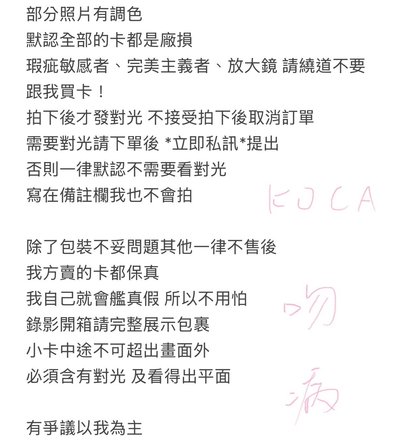 部分照片有調色
默認全部的卡都是廠損
瑕疵敏感者、完美主義者、放大鏡 請繞道不要
跟我買卡！
拍下後才發對光 不接受拍下後取消訂單
需要對光請下單後 *立即私訊*提出
否則一律默認不需要看對光
寫在備註欄我也不會拍
KOCA
除了包裝不妥問題其他一律不售後
我方賣的卡都保真
我自己就會艦真假 所以不用怕
吻
錄影開箱請完整展示包裹
小卡中途不可超出畫面外
必須含有對光 及看得出平面
病
有爭議以我為主